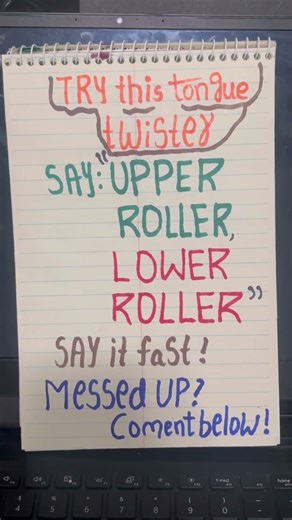 TRY this tongue
twister
SAY: "UPPER
ROLLER,
LOWER
ROLLER"
SAY it fast!
Messed UP?
Coment below!